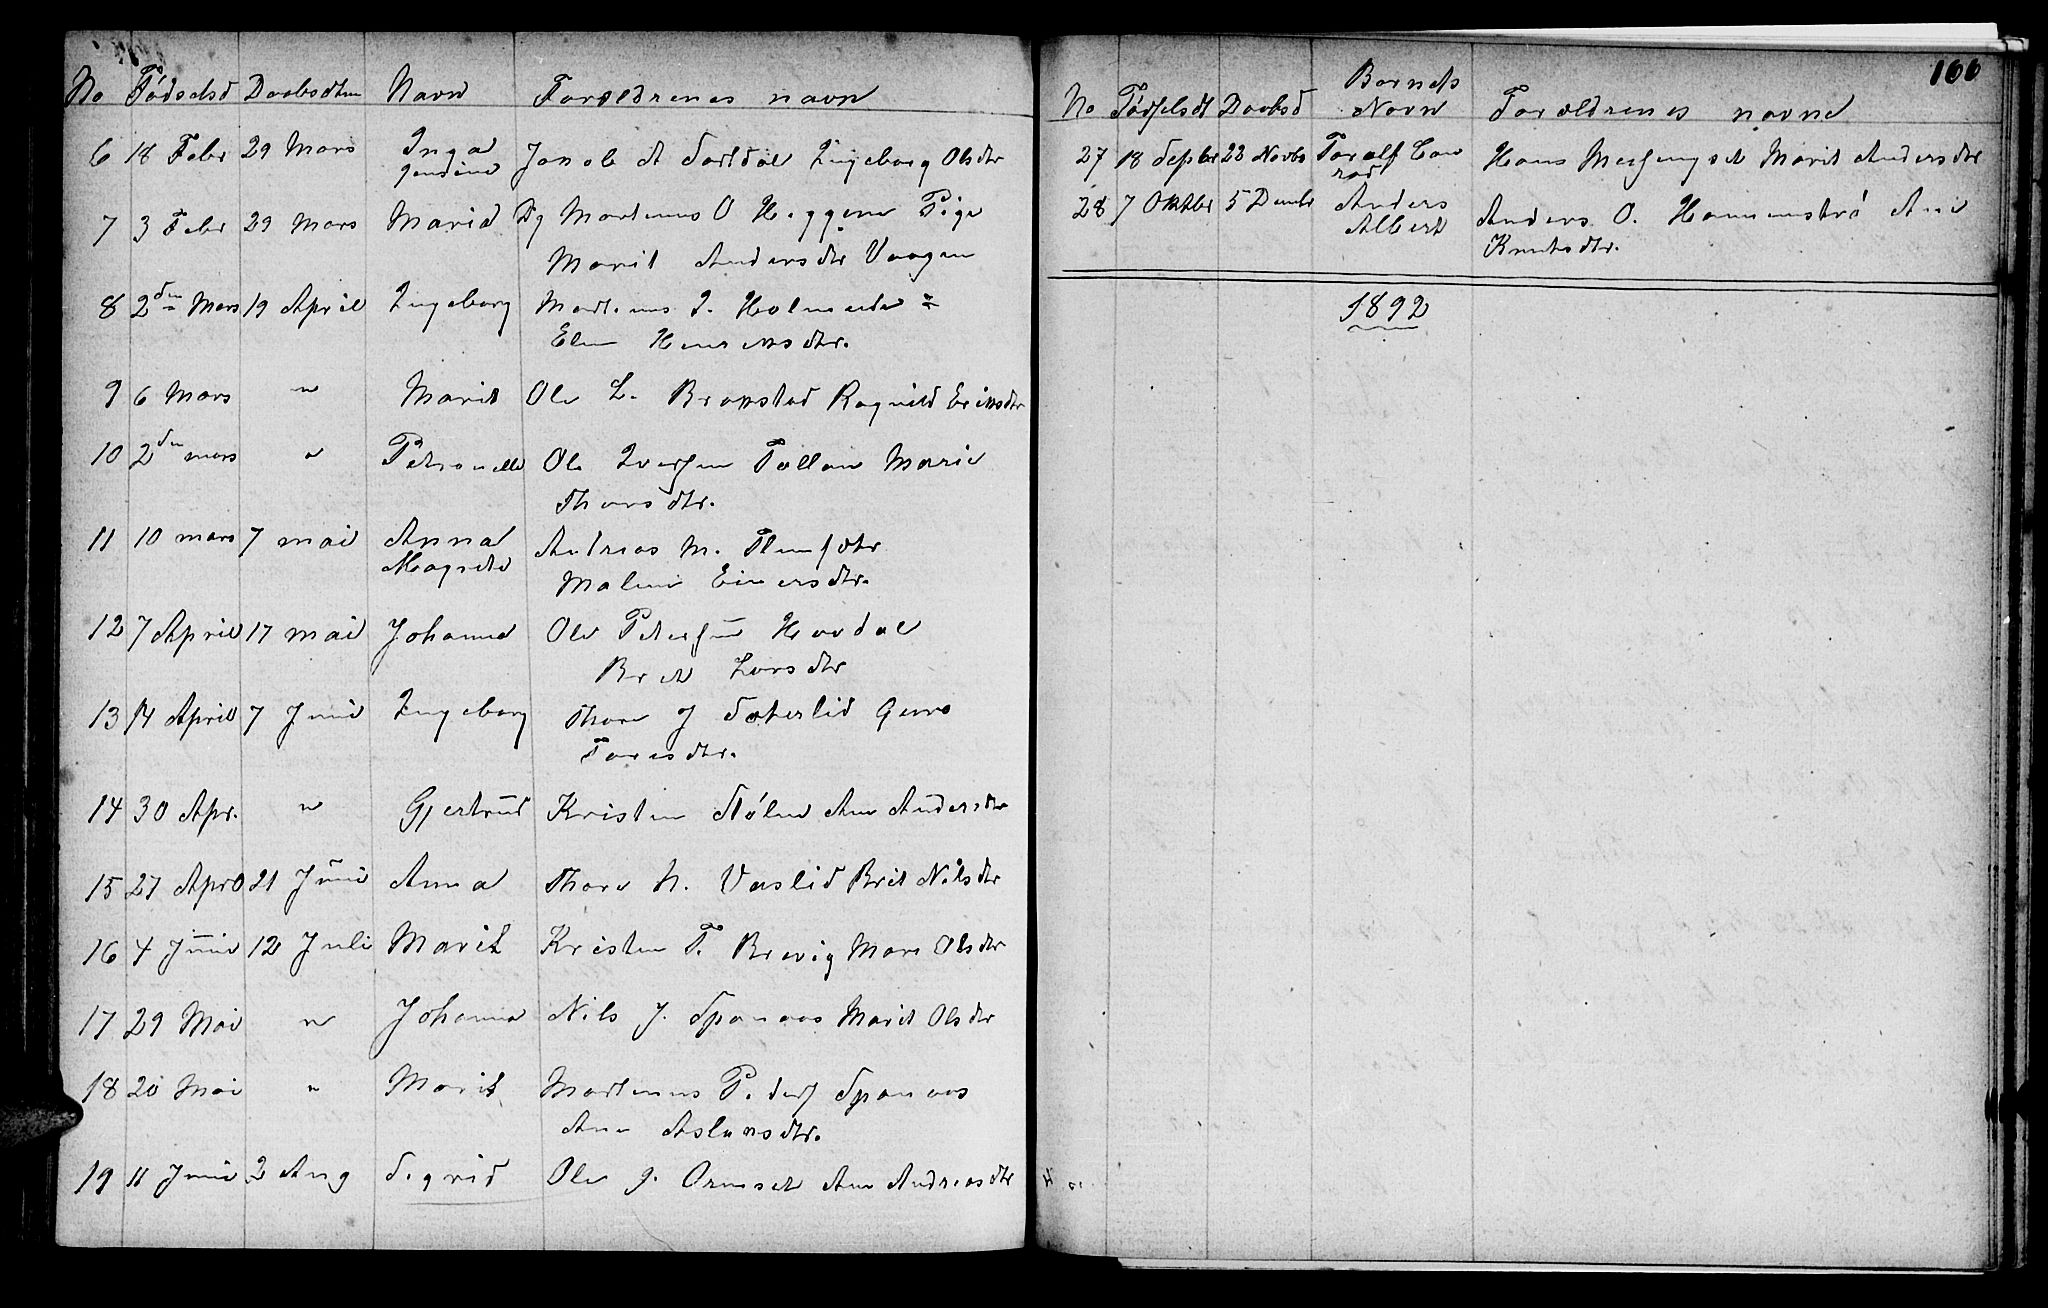 No Fødselsd Daabsdten Navn Forældrenes navn
6 18 Febr 29 Mars Inga Jakob A Sartdal Ingeborg Olsdtr
Gurdine
7 3 Febr 29 Mars Marid Martinus O Heggem Pige
Marit Andersdtr Vaagen
8 2den Mars 19 April Ingeborg Martinus I. Holmeide =
Elen Henriksdtr.
9 6 Mars " Marit Ole L. Brakstad Ragnild Eriksdtr
10 2den mars " Petronelle Ole Iversen Talbau Marie
Thorsdtr.
11 10 mars 7 mai Anna Andreas M.
Magrete Malene Einersdtr.
12 7 April 17 mai Johanna Ole Petersen Hovdal
Bret Larsdtr
13 14 April 7 Juni Ingeborg Thore J Sæterlid Guro
Toresdtr.
14 30 Apr. " Gjertrud Kristen Stølen Ane Andersdtr
15 27 Apr 21 Juni Anna Thore N. Vaslid Brit Nilsdtr
16 4 Juni 12 Juli Marit Kristen T. Brevig Mare Olsdtr
17 29 Mai " Johanna Nils J. Sponaas Marit Olsdtr
18 20 Mai " Marit Martinus P. Sponaas
Ane Aslaksdtr.
19 11 Juni 2 Aug Sigrid Ole J. Ormset Ane Andreasdtr
166
Barnets
No Fødselsdt Daabsd Navn Forældrenes navne
27 18 Septbr 22 Novbr Toralf Con Hans Marit Andersdtr
rad
28 7 Oktbr 5 Decmbr Anders Anders O. Hammerstrø Ane
Albert Knutsdtr.
1892